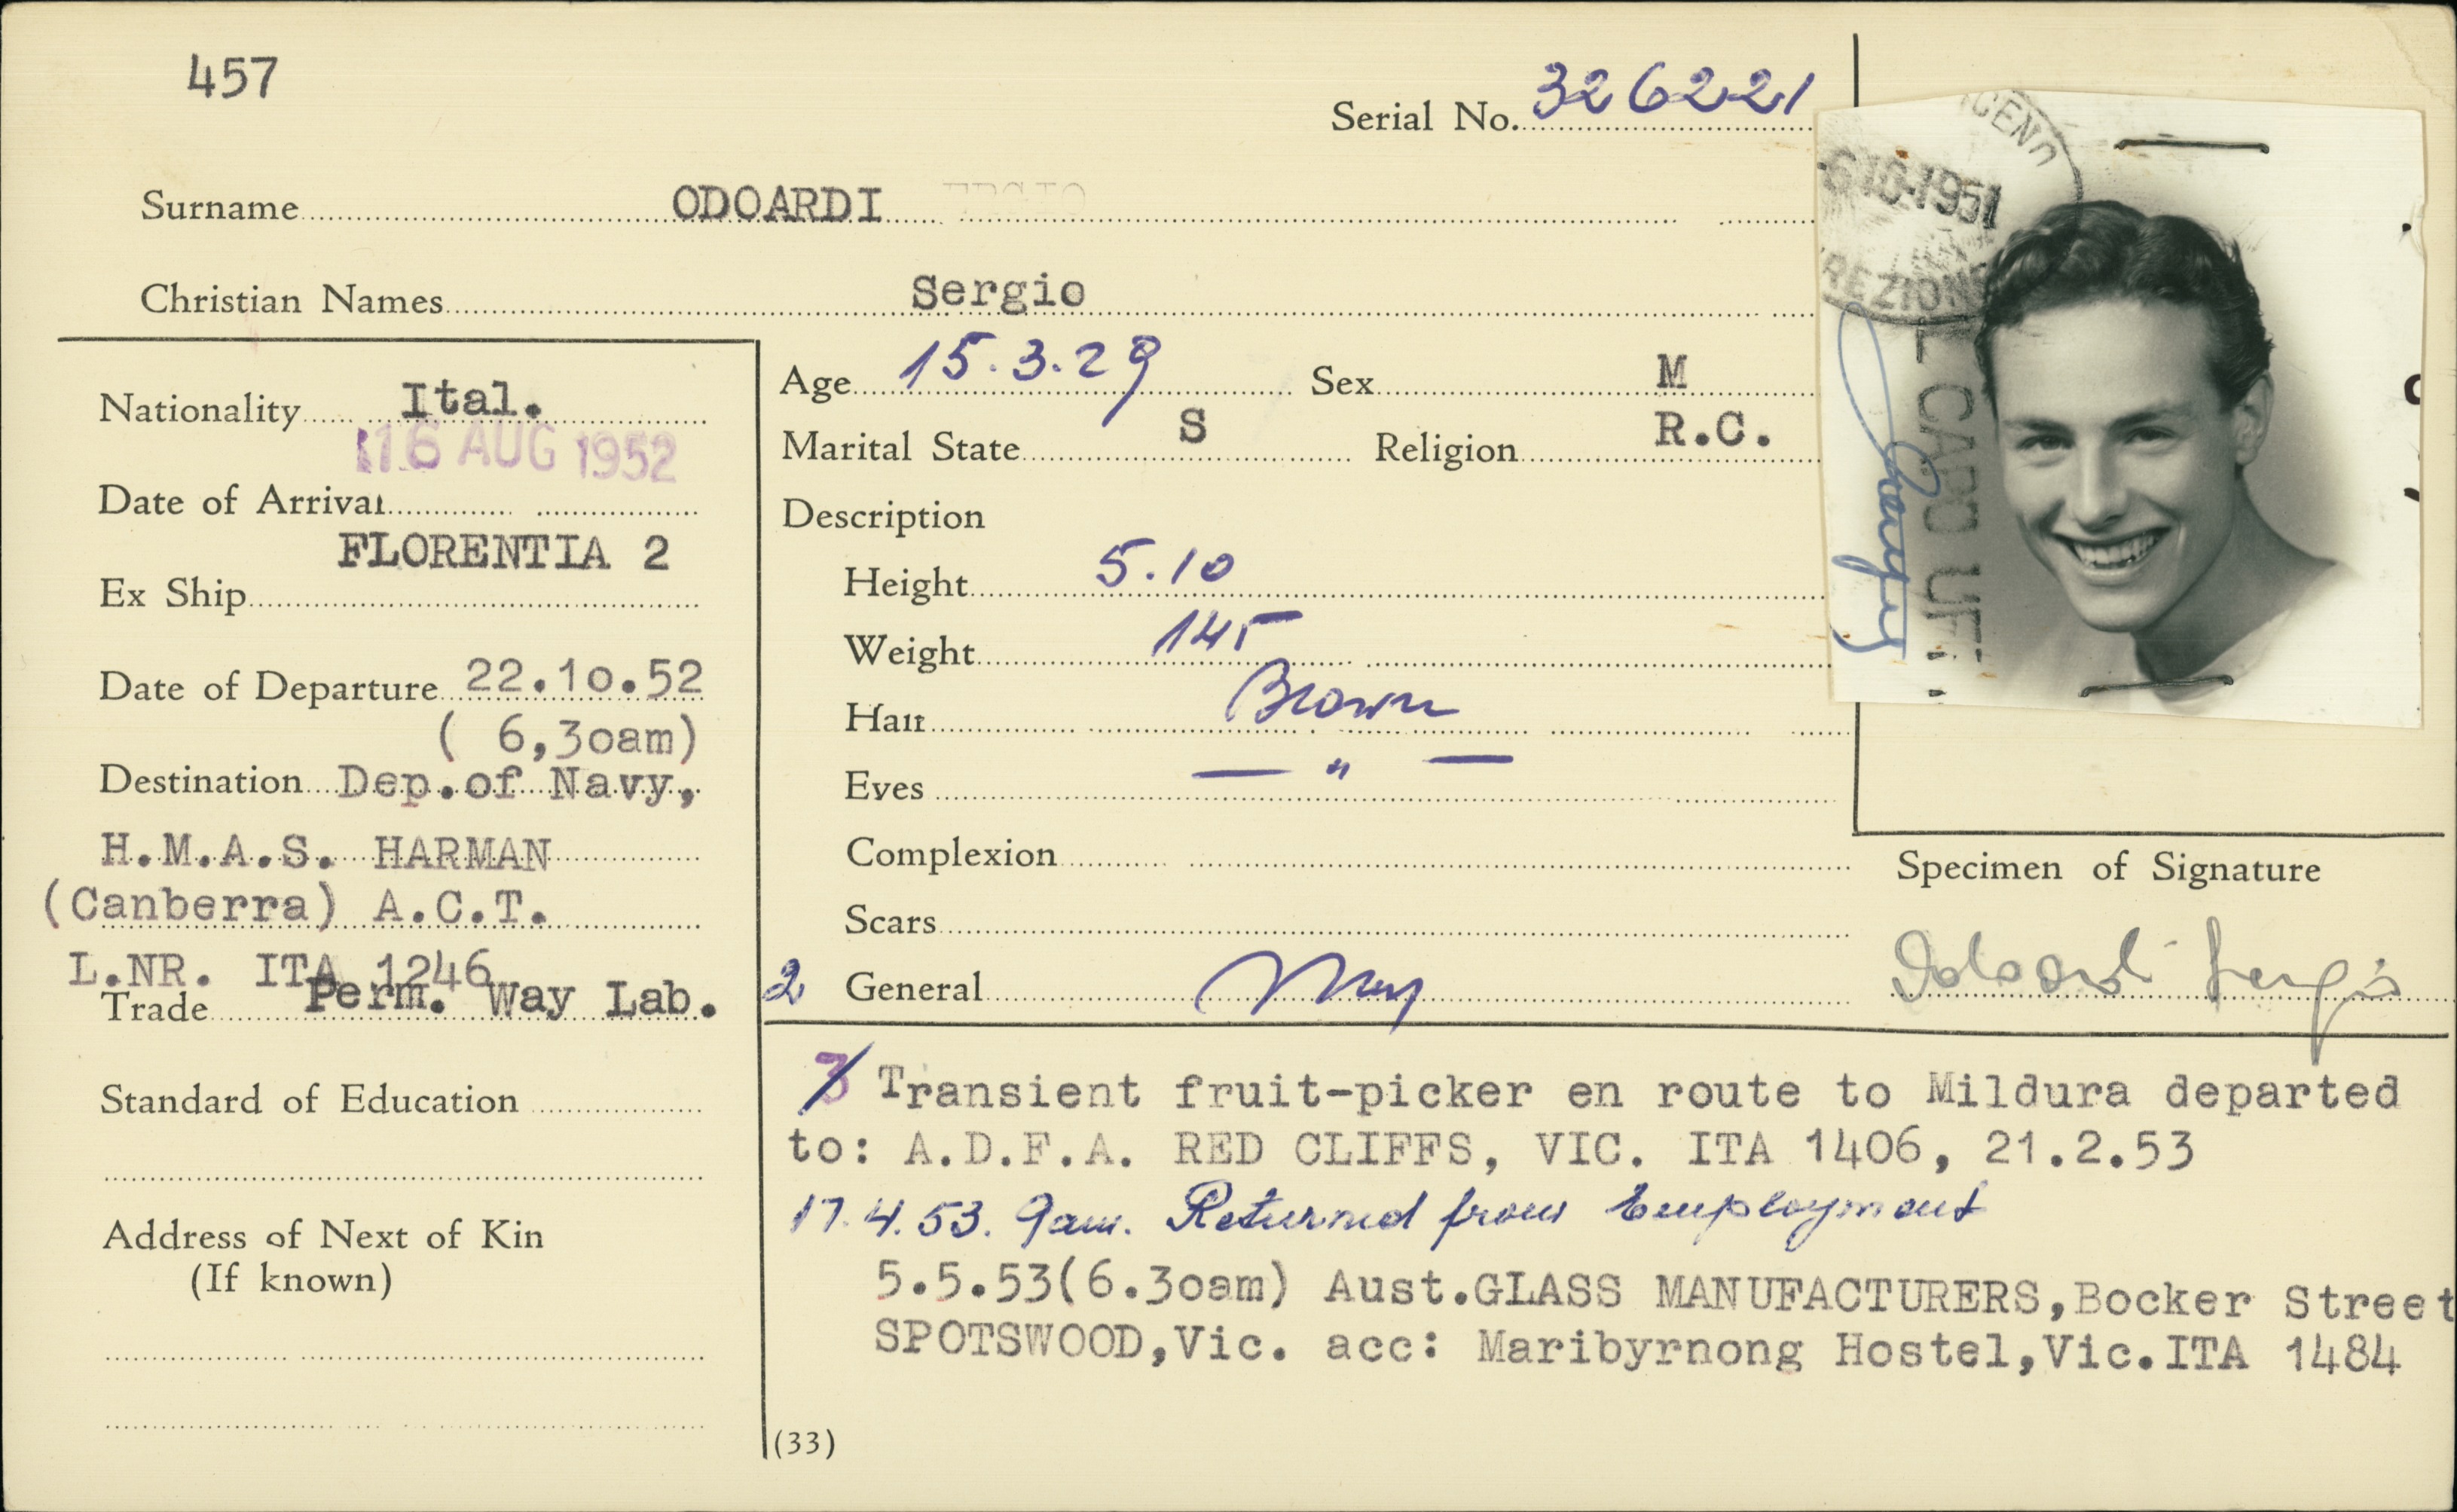 457
Serial No. 326221
Surname ODOARDI
Christian Names Sergio
Nationality Ital.
16 AUG 1952
Date of Arrival
FLORENTIA 2
Ex Ship
Date of Departure 22.10.52
( 6,30am)
Destination Dep.of Navy,
H.M.A.S. HARMAN
(Canberra) A.C.T.
L.NR. ITA 1246
Trade Perm. Way Lab.
Standard of Education
Address of Next of Kin
(If known)
Age 15.3.29 Sex M
Marital State S Religion R.C.
Description
Height 5.10
Weight 145
Hair Brown
Eyes — " —
Complexion
Scars
2 General
-1951
REZION
L CAPO UF
Specimen of Signature
Odoardi Sergio
3 Transient fruit-picker en route to Mildura departed
to: A.D.F.A. RED CLIFFS, VIC. ITA 1406, 21.2.53
17.4.53. 9am. Returned from Employment
5.5.53(6.30am) Aust.GLASS MANUFACTURERS,Bocker Street
SPOTSWOOD,Vic. acc: Maribyrnong Hostel,Vic.ITA 1484
(33)